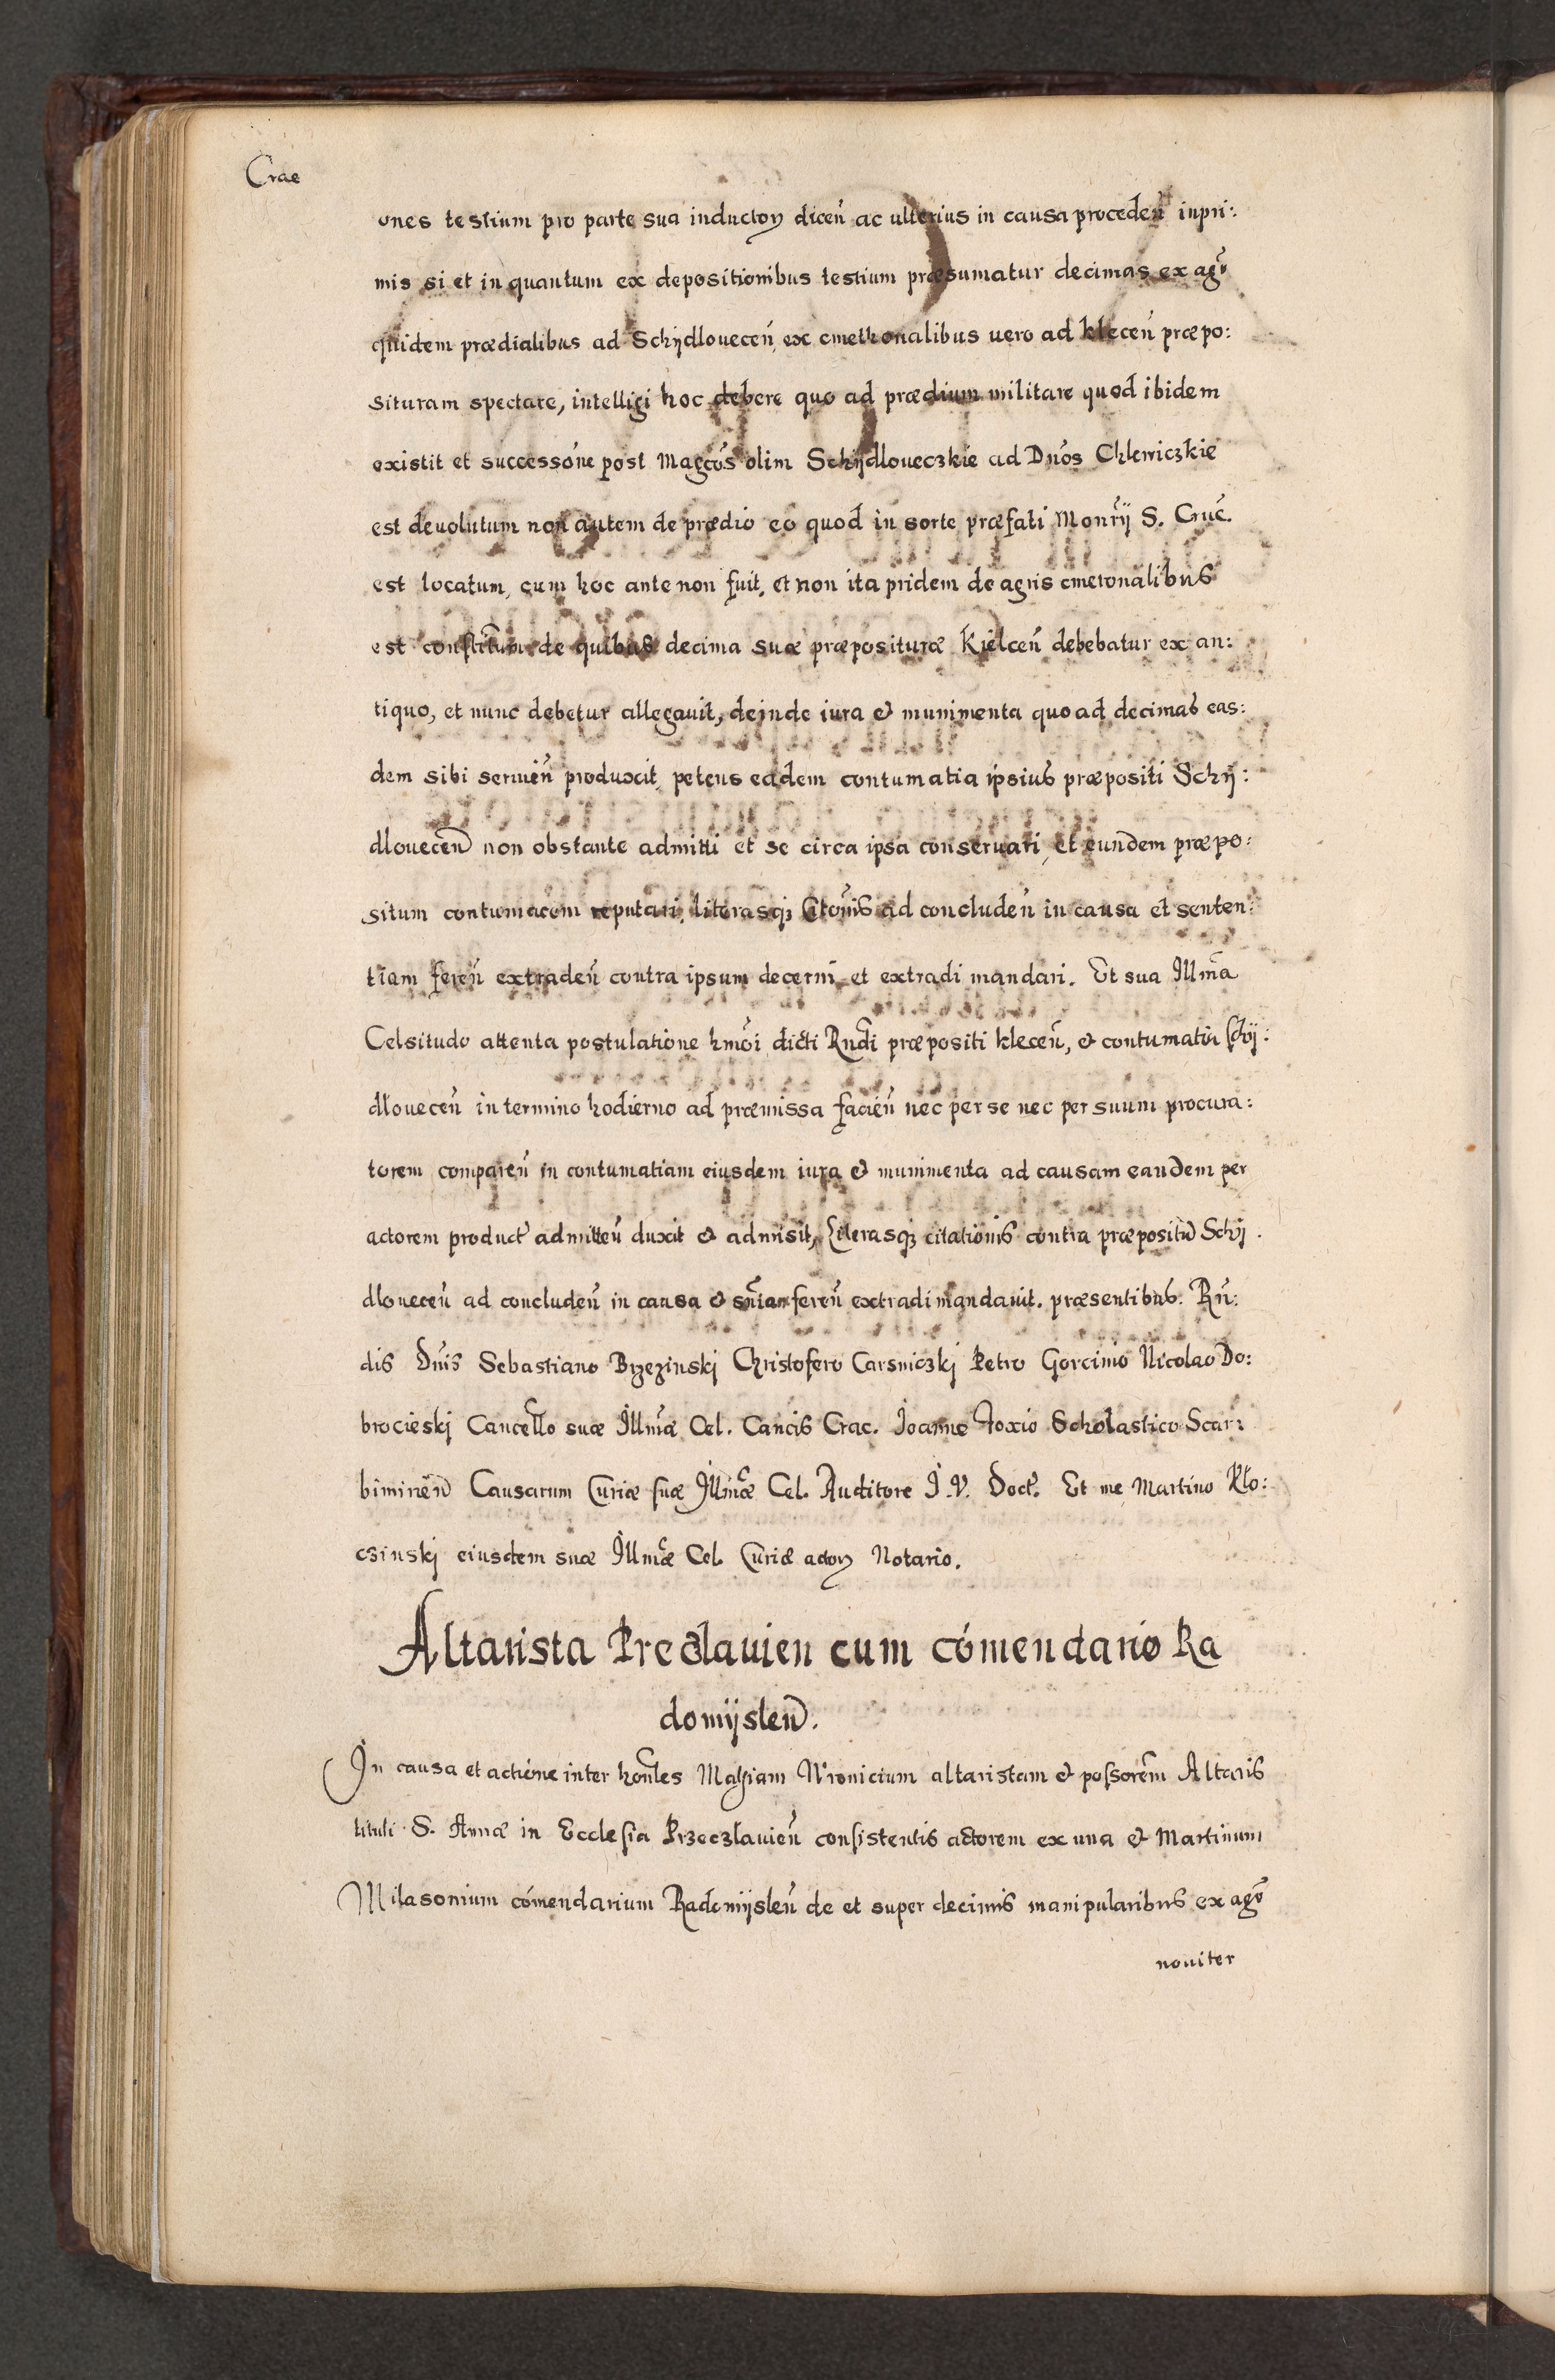 Crae
ones testium pro parte sua inductoꝝ dicen̄ ac ulterius in causa proceden̄ inpri:
mis si et in quantum ex depositionibus testium præsumatur decimas ex agr̄
quidem prædialibus ad Schÿdlouecen̄ ex cmethonalibus uero ad klecen̄ præpo:
situram spectare, intelligi hoc debere quo ad prædium militare quod ibidem
existit et successōne post Magcōs olim Schÿdloueczkie ad Dnōs Chlewiczkie
est deuolutum non autem de prædio eo quod in sorte præfati Monrÿ S. Cruc̄.
est locatum, cum hoc ante non fuit, et non ita pridem de agris cmetonalibus
est constitūm de quibus decima suæ præposituræ Kielcen̄ debebatur ex an:
tiquo, et nunc debetur allegauit, deinde iura & munimenta quo ad decimas eas:
dem sibi seruien̄ produxit, petens eadem contumatia ipsius præpositi Schÿ:
dlouecen̄ non obstante admitti et se circa ipsa conseruari, et eundem præpo:
situm contumacem reputari, literasqꝫ Citōnis ad concluden̄ in causa et senten:
tiam feren̄ extraden̄ contra ipsum decerni et extradi mandari. Et sua Illmā
Celsitudo attenta postulatione hmōi dicti Rndī præpositi klecen̄, & contumatia Schÿ:
dlouecen̄ in termino hodierno ad præmissa facien̄ nec per se nec per suum procura:
torem comparen̄ in contumatiam eiusdem iura & munimenta ad causam eandem per
actorem product̄ admitten̄ duxit & admisit, Literasqꝫ citationis contra præpositū Schÿ.
dlouecen̄ ad concluden̄ in causa & sn̄iam feren̄ extradi mandauit. præsentibus. Rn̄:
dis Dnīs Sebastiano Brzezinskj Christofero Carsniczkj Petro Gorcinio Nicolao Do:
brocieskj Cancell̄o suæ Illmǣ Cel. Cancis Crac. Joanne Foxio Scholastico Scar:
bimirien̄ Causarum Curiæ suæ Illmǣ Cel. Auditore J.V. Doct̄. Et me Martino Klo:
czinskj eiusdem suæ Illmǣ Cel. Curiæ actoꝝ Notario.
Altarista Preczlauien cum cōmendario Ra
domÿslen̄.
In causa et actione inter honl̄es Mathiam Wronicium altaristam & possorēm Altaris
tituli S. Annæ in Ecclesia Przeczlauien̄ consistentis actorem ex una & Martinum
Milasonium cōmendarium Radomÿslen̄ de et super decimis manipularibus ex agr̄
nouiter